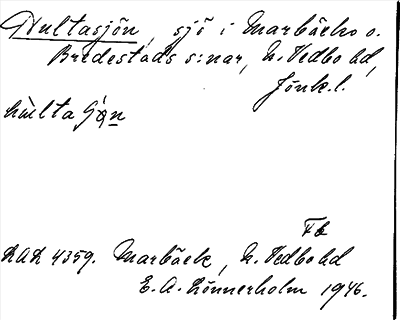 Hultasjön, sjö i Marbäcks o.
Bredestads s:nar, N. Vedbo hd,
Jönk.l.
hùlta
Fb
KAK 4359. Marbäck, N. Vedbo hd
E. A. Lönnerholm 1946.